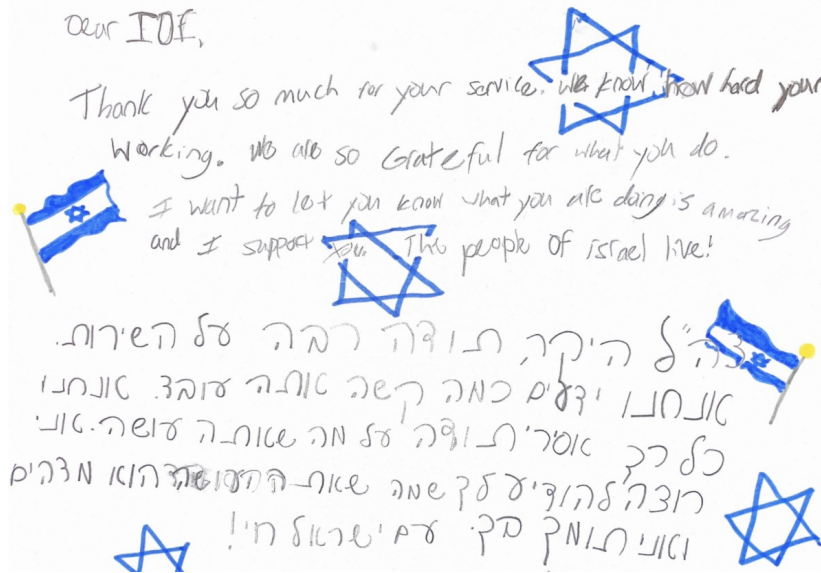 Dear IDF,
Thank you so much for your service. We know how hard your
working. We are so Grateful for what you do.
I want to let you know what you are doing is amazing
and I support you. The people of israel live!
צה"ל היקר, תודה רבה על השירות.
אנחנו ידעים כמה קשה אותה עובד. אנחנו
כל כך אסירי תודה על מה שאותה עושה. אני
רוצה להודיע לך שמה שאת הוא מדהים
ואני תומך בך. עם ישראל חי!